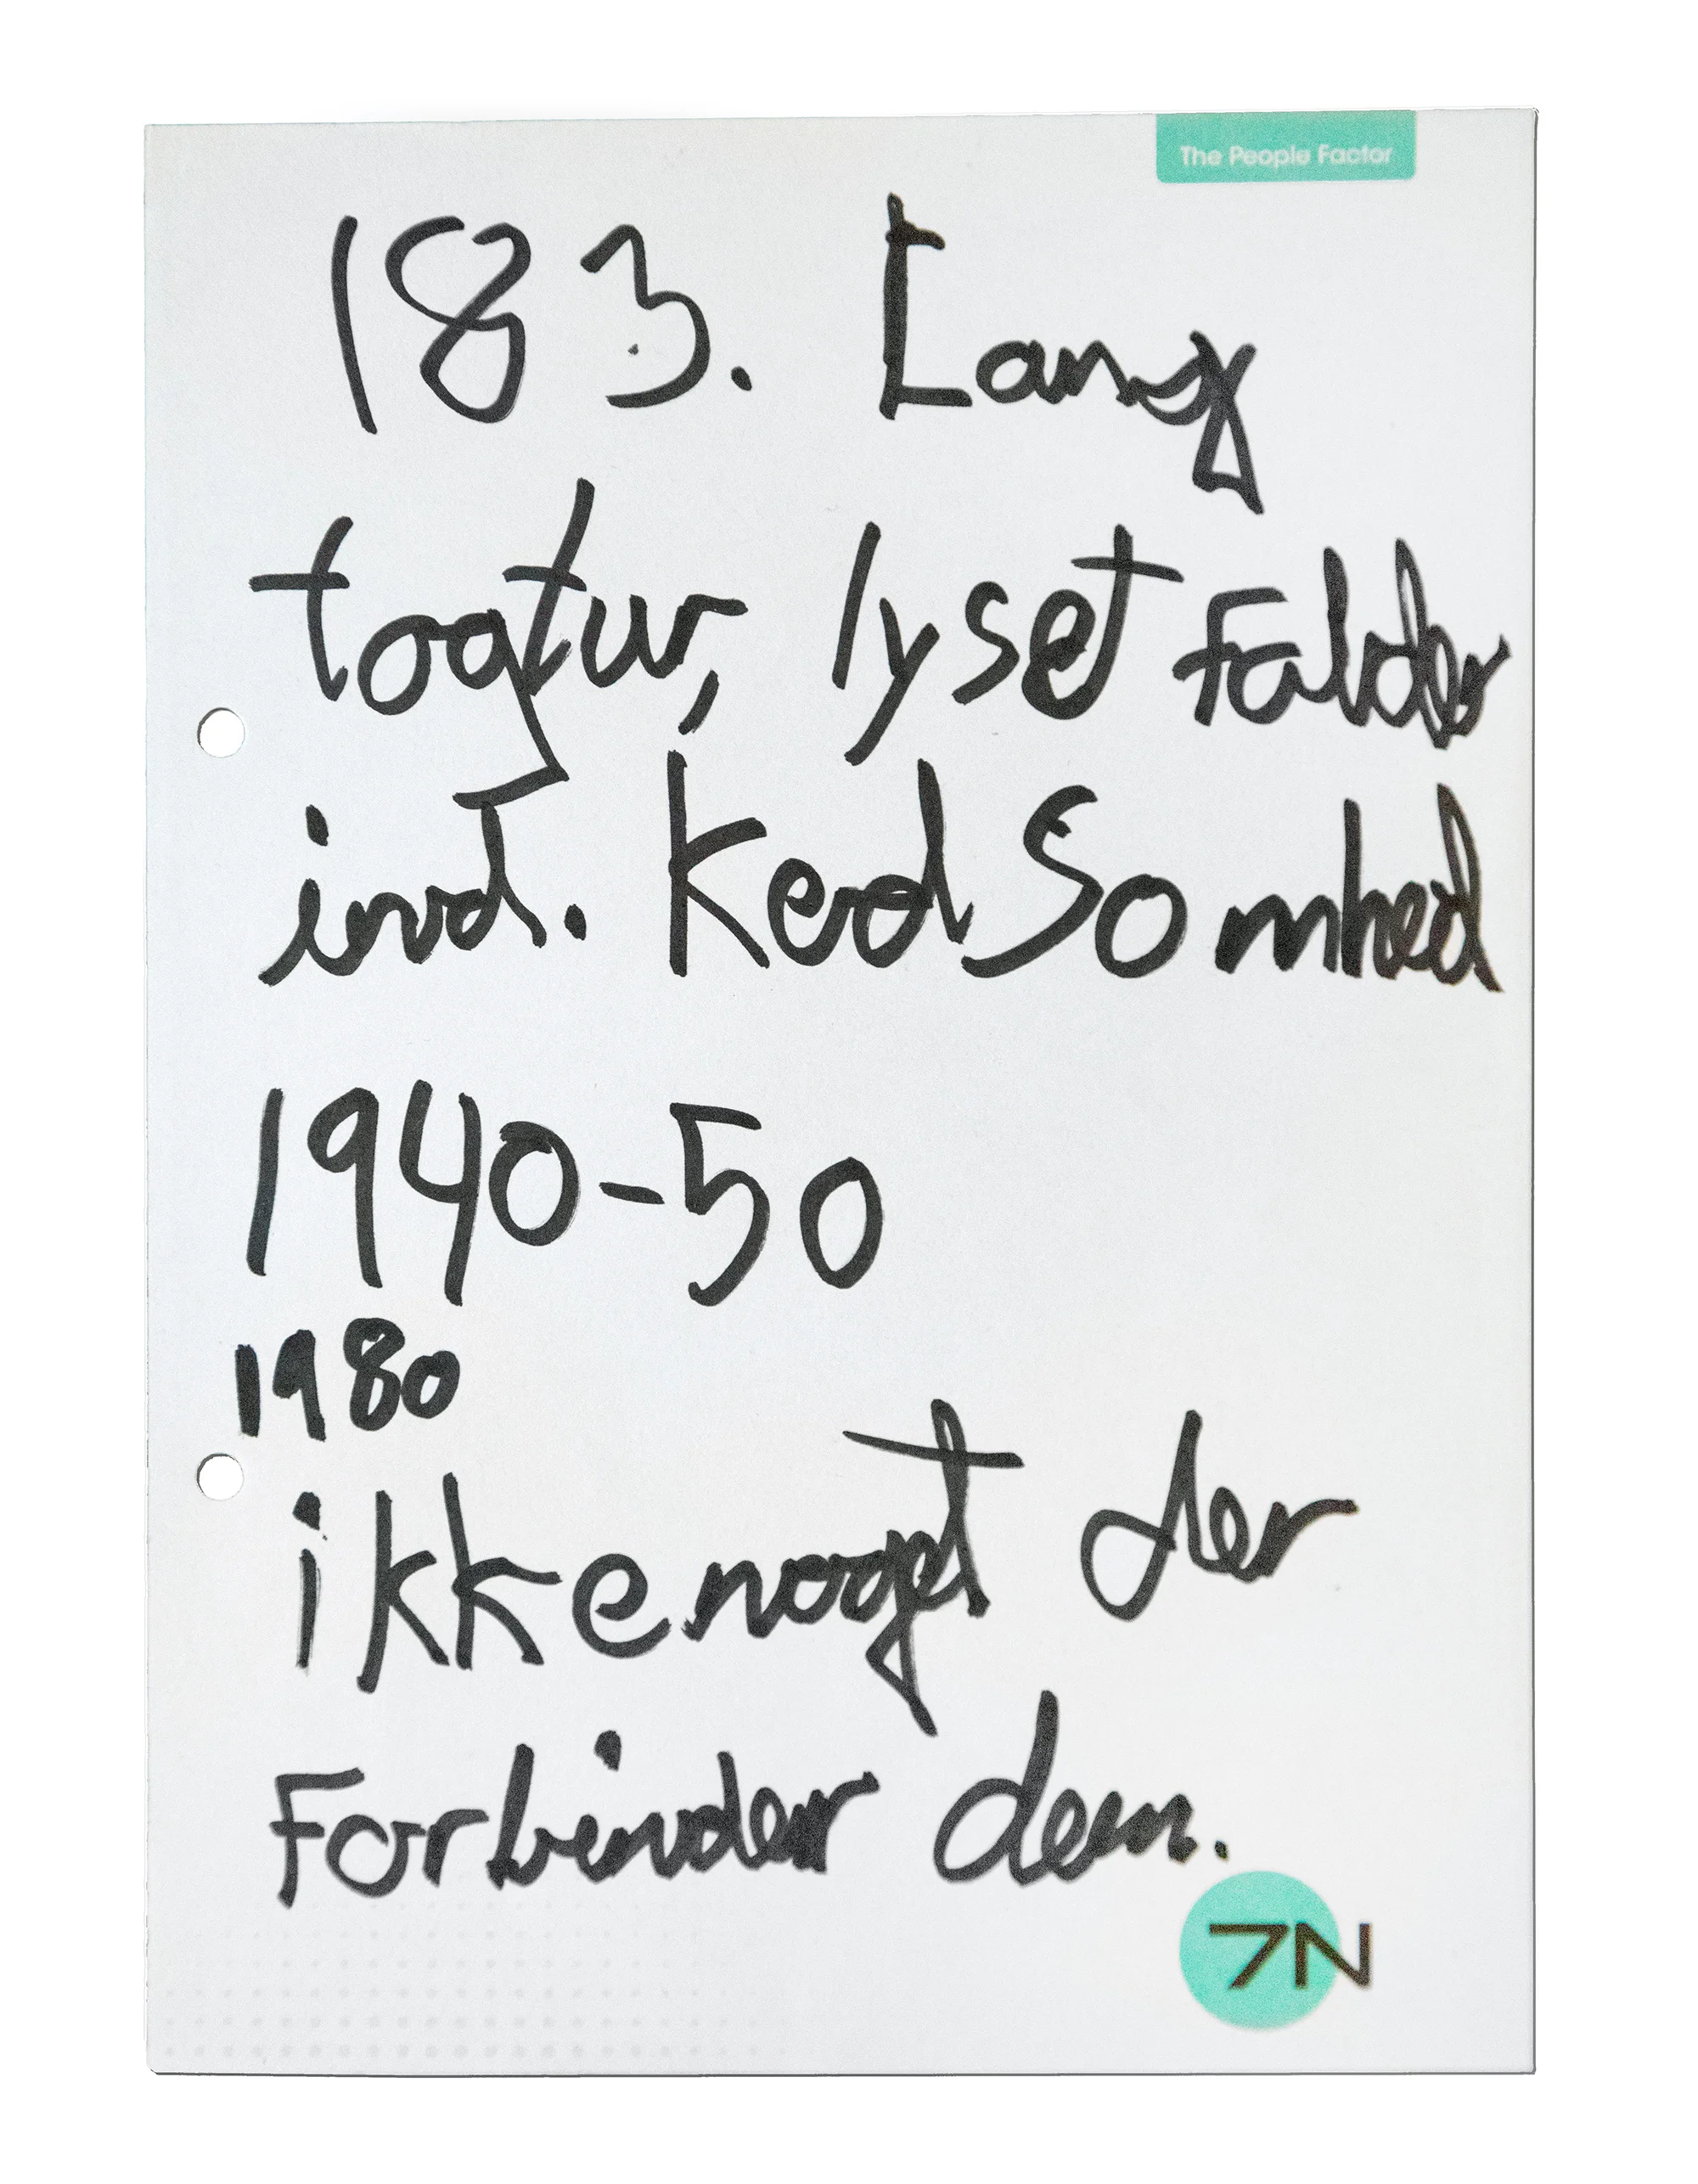 The People Factor
183. Lang
togtur, lyset Falder
ind. KedSomhed
1940-50
1980
ikke noget der
Forbinder dem.
7N